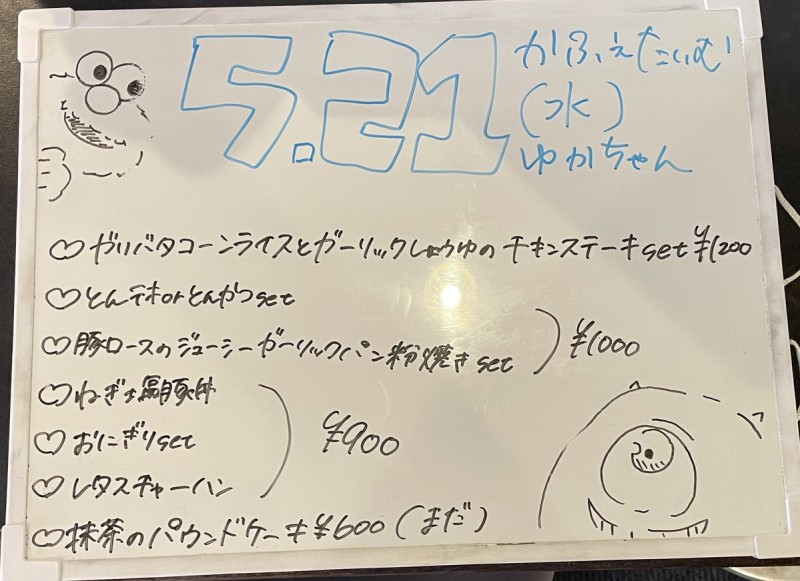 5.21
かふぇたいむ
(水)
ゆかちゃん
♡ガリバタコーンライスとガーリックしょうゆのチキンステーキset ¥1200
♡とんテキorとんかつset
♡豚ロースのジューシーガーリックパン粉焼きset
¥1000
♡ねぎ塩豚丼
♡おにぎりset
♡レタスチャーハン
¥900
♡抹茶のパウンドケーキ¥600(まだ)